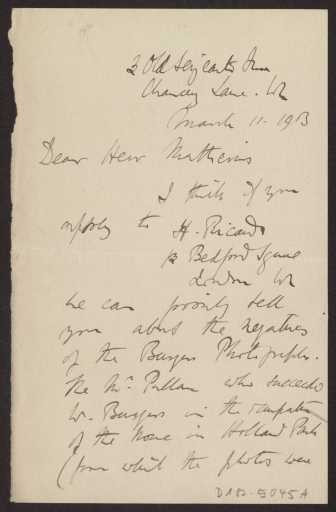 3 Old Serjeants Inn
Chancery Lane. W
March 11. 1913
Dear Herr Muthesius
I think if you
apply to H. Ricardo
13 Bedford Square
London W
he can possibly tell
you about the negatives
of the Burges Photographs.
The Mr. Pullan who succeeded
W. Burges in the
of the House in Holland Park
(from which the photos were
D 102-5045 A